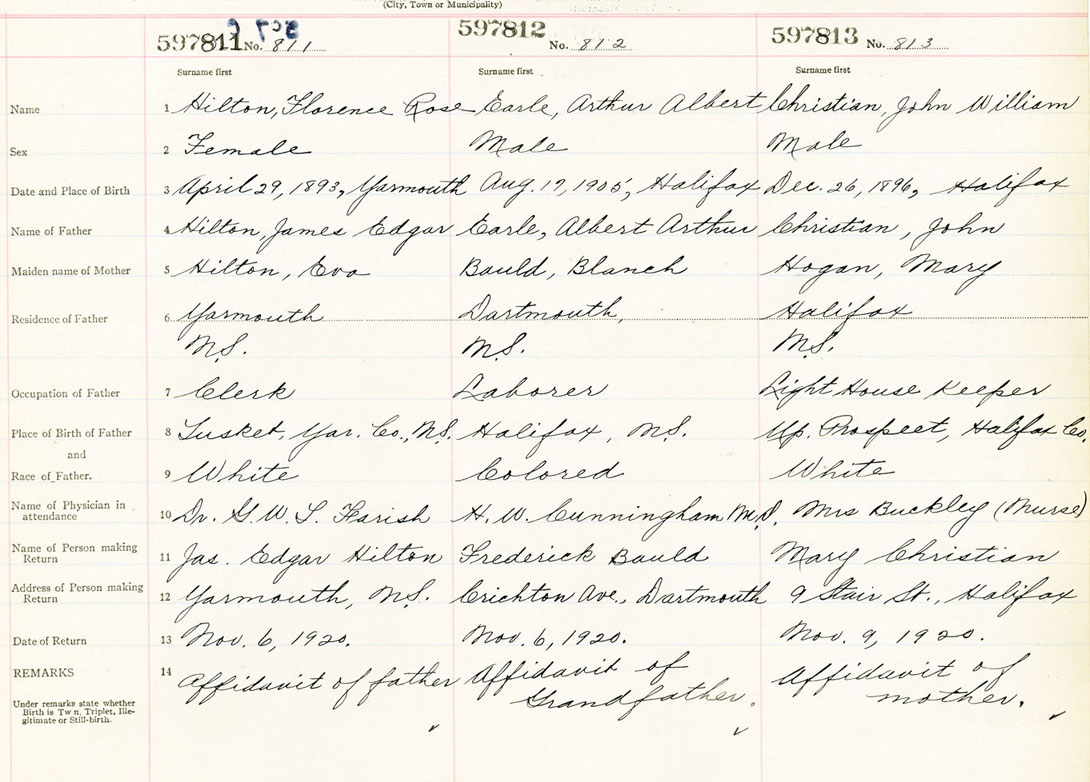 (City, Town or Municipality)
597811 No. 811 597812 No. 812 597813 No. 813
Surname first Surname first Surname first
Name 1 Hilton, Florence Rose Earle, Arthur Albert Christian, John William
Sex 2 Female Male Male
Date and Place of Birth 3 April 29, 1893, Yarmouth Aug. 17, 1905, Halifax Dec. 26, 1896, Halifax
Name of Father 4 Hilton, James Edgar Earle, Albert Arthur Christian, John
Maiden name of Mother 5 Hilton, Eva Bauld, Blanch Hogan, Mary
Residence of Father 6 Yarmouth Dartmouth, Halifax
N.S. N.S. N.S.
Occupation of Father 7 Clerk Laborer Light House Keeper
Place of Birth of Father 8 Tusket, Yar. Co., N.S. Halifax, N.S. Up. Prospect, Halifax Co.
and
Race of Father. 9 White Colored White
Name of Physician in
attendance 10 Dr. G. W. T. Farish H. W. Cunningham M.D. Mrs Buckley (Nurse)
Name of Person making
Return 11 Jas. Edgar Hilton Frederick Bauld Mary Christian
Address of Person making
Return 12 Yarmouth, N.S. Crichton Ave., Dartmouth 9 Stair St., Halifax
Date of Return 13 Nov. 6, 1920. Nov. 6, 1920. Nov. 9, 1920.
REMARKS 14 Affidavit of father Affidavit of Affidavit of
Grandfather. mother.
Under remarks state whether
Birth is Twin, Triplet, Ille-
gitimate or Still-birth.